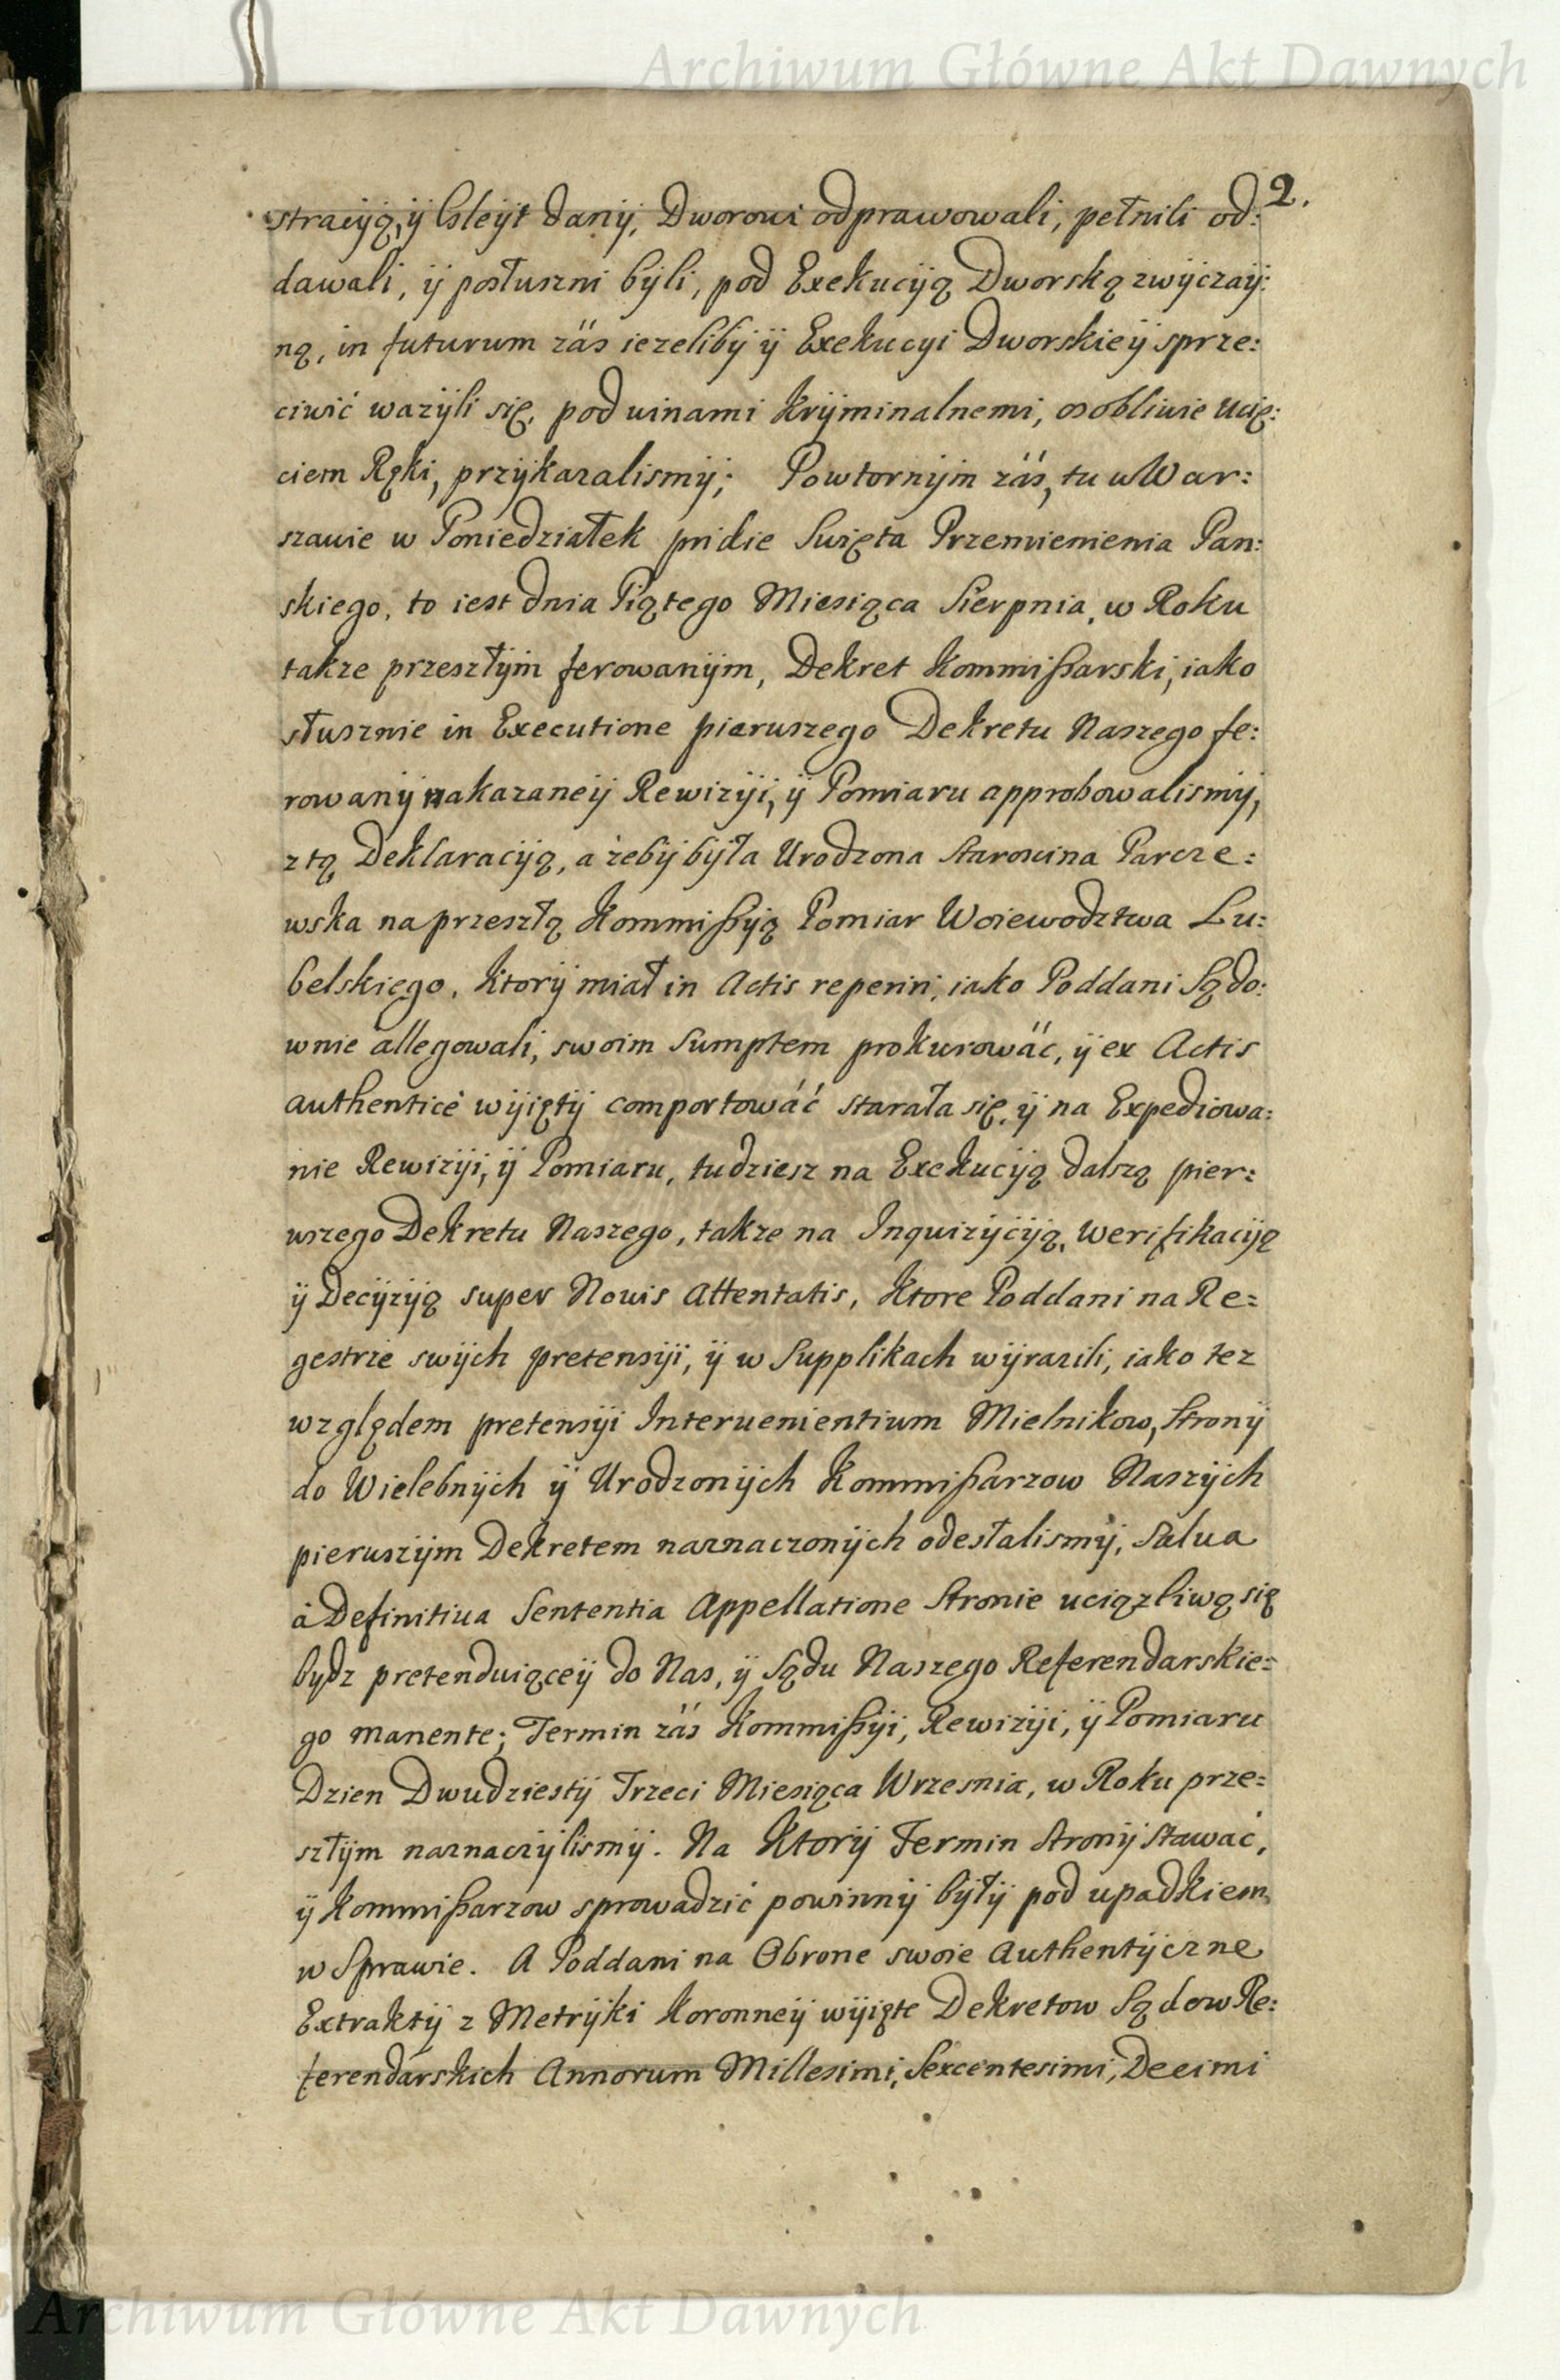 Archiwum Główne Akt Dawnych
2.
stracÿą, ÿ Gleÿt danÿ, Dworowi odprawowali, pełnili od:
dawali, ÿ posłuszni bÿli, pod Exekucÿą Dworską zwÿczaÿ:
ną, in futurum zäs iezelibÿ ÿ Exekucyi Dworskieÿ sprze:
ciwić wazÿli się, pod winami krÿminalnemi, osobliwie ucię:
ciem Ręki, przÿkazalismÿ; Powtornÿm zäs, tu w War:
szawie w Poniedziałek pridie Swięta Przemienienia Pan:
skiego, to iest dnia Piątego Miesiąca Sierpnia, w Roku
takze przeszłÿm ferowanÿm, Dekret Kommißarski, iako
słusznie in Executione pierwszego Dekretu Naszego fe:
rowanÿ nakazaneÿ Rewizÿi, ÿ Pomiaru approbowalismÿ,
z tą Deklaracÿą, a żebÿ bÿła Urodzona Starosina Parcze:
wska na przeszłą Kommißÿą Pomiar Woiewodztwa Lu:
belskiego, ktorÿ miał in Actis reperiri, iako Poddani Sądo:
wnie allegowali, swoim Sumptem prokurowäć, ÿ ex Actis
authenticè wÿiętÿ comportowáć starała się, ÿ na Expediowa:
nie Rewizÿi, ÿ Pomiaru, tudziesz na Exekucÿą dalszą pier:
wszego Dekretu Naszego, takze na Inquizÿcÿą, werifikacÿą
ÿ Decÿzÿą super Nouis Attentatis, ktore Poddani na Re=
gestrze swÿch pretensÿi, ÿ w Supplikach wÿrazili, iako tez
względem pretensÿi Interuenientium Mielnikow, Stronÿ
do Wielebnÿch ÿ Urodzonÿch Kommißarzow Naszÿch
pierwszÿm Dekretem naznaczonÿch odesłalismÿ, Salua
à Definitiua Sententia Appellatione Stronie uciązliwą się
bydz pretenduiąceÿ do Nas, ÿ Sądu Naszego Referendarskie=
go manente; Termin zäs Kommißÿi, Rewizÿi, ÿ Pomiaru
Dzien Dwudziestÿ Trzeci Miesiąca Wrzesnia, w Roku prze=
szłÿm naznaczÿlismÿ. Na ktorÿ Termin Stronÿ stawać,
ÿ Kommißarzow sprowadzić powinnÿ bÿłÿ pod upadkiem
w Sprawie. A Poddani na Obrone swoie Authentÿczne
Extraktÿ z Metrÿki Koronneÿ wÿięte Dekretow Sądow Re:
ferendarskich Annorum Millesimi, Sexcentesimi, Decimi
Archiwum Główne Akt Dawnych